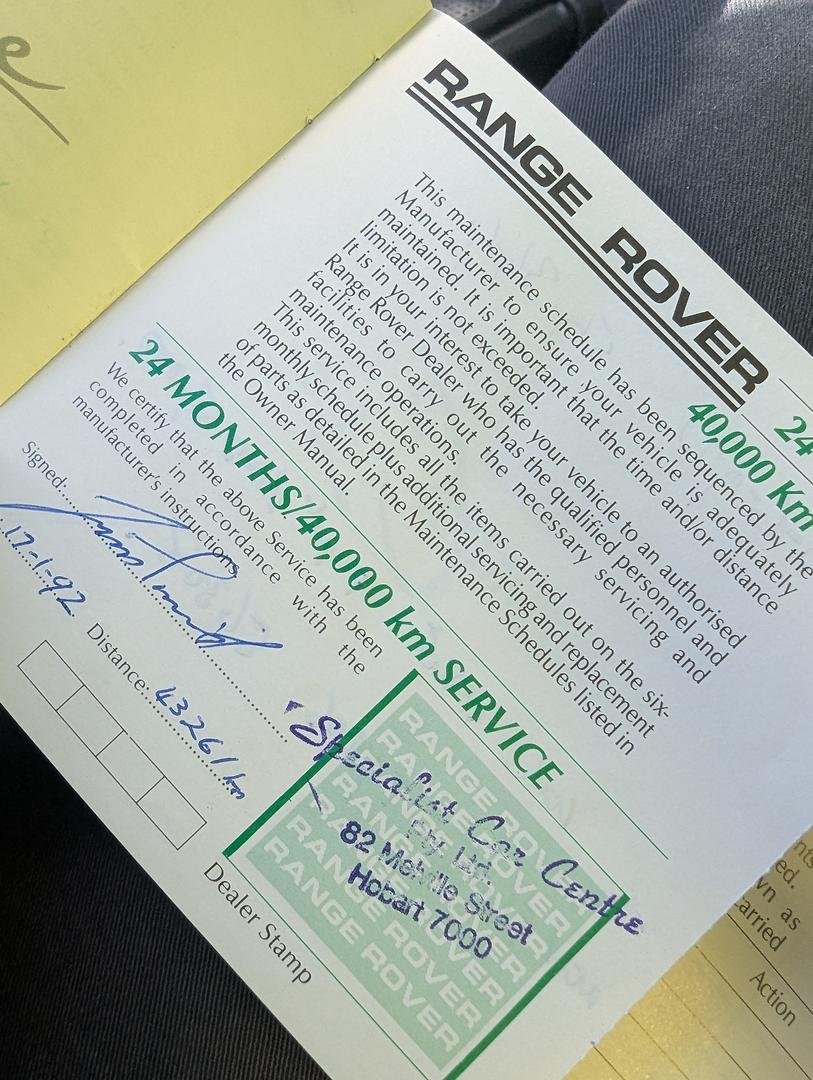 RANGE ROVER
24
40,000 Km
This maintenance schedule has been sequenced by the
Manufacturer to ensure your vehicle is adequately
maintained. It is important that the time and/or distance
limitation is not exceeded.
It is in your interest to take your vehicle to an authorised
Range Rover Dealer who has the qualified personnel and
facilities to carry out the necessary servicing and
maintenance operations.
This service includes all the items carried out on the six-
monthly schedule plus additional servicing and replacement
of parts as detailed in the Maintenance Schedules listed in
the Owner Manual.
24 MONTHS/40,000 km SERVICE
We certify that the above Service has been
completed in accordance with the
manufacturer's instructions
Signed
17-1-92
Distance: 43261 km
Specialist Car Centre
Pty. Ltd.
82 Melville Street
Hobart 7000
RANGE ROVER
RANGE ROVER
RANGE ROVER
RANGE ROVER
RANGE ROVER
RANGE ROVER
Dealer Stamp
ed.
as
carried
Action